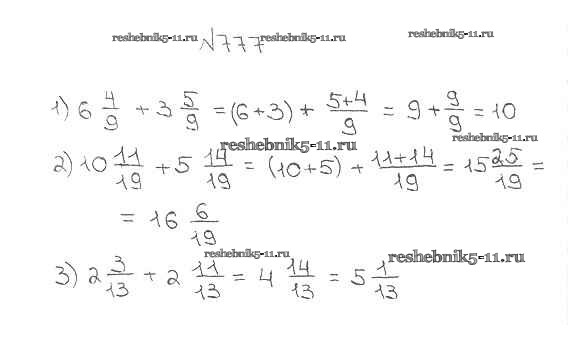 reshebnik5-11.ru √777 reshebnik5-11.ru reshebnik5-11.ru
1) 6 4/9 + 3 5/9 = (6+3) + (5+4)/9 = 9 + 9/9 = 10
reshebnik5-11.ru reshebnik5-11.ru
2) 10 11/19 + 5 14/19 = (10+5) + (11+14)/19 = 15 25/19 =
= 16 6/19
reshebnik5-11.ru reshebnik5-11.ru
3) 2 3/13 + 2 11/13 = 4 14/13 = 5 1/13